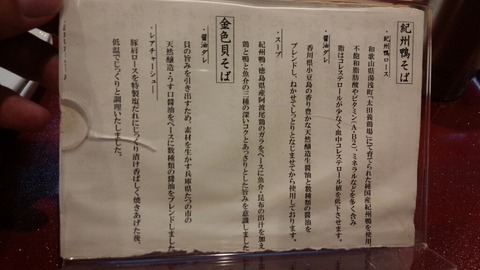 紀州鴨そば
・紀州鴨ロース
和歌山県湯浅町「太田養鶏場」にて育てられた純国産紀州鴨を使用、
不飽和脂肪酸やビタミン(A・B2)、ミネラルなどを多く含み
脂はコレステロールが少なく血中コレステロール値を低下させます。
・醤油ダレ
香川県小豆島の香り豊かな天然醸造生醤油と数種類の醤油を
ブレンドし、ねかせてしっとりとなじませてから使用しております。
・スープ
紀州鴨・徳島県産阿波尾鶏のガラをベースに魚介・昆布の出汁を加え
鶏と鴨と魚介の三種の深いコクとあっさりとした旨みを意識しました
金色貝そば
・醤油ダレ
貝の旨みを引き出すため、素材を生かす兵庫県たつの市の
天然醸造・うす口醤油をベースに数種類の醤油をブレンドしました
・レアチャーシュー
豚肩ロースを特製塩だれにじっくり漬け香ばしく焼きあげた後、
低温でじっくりと調理いたしました。